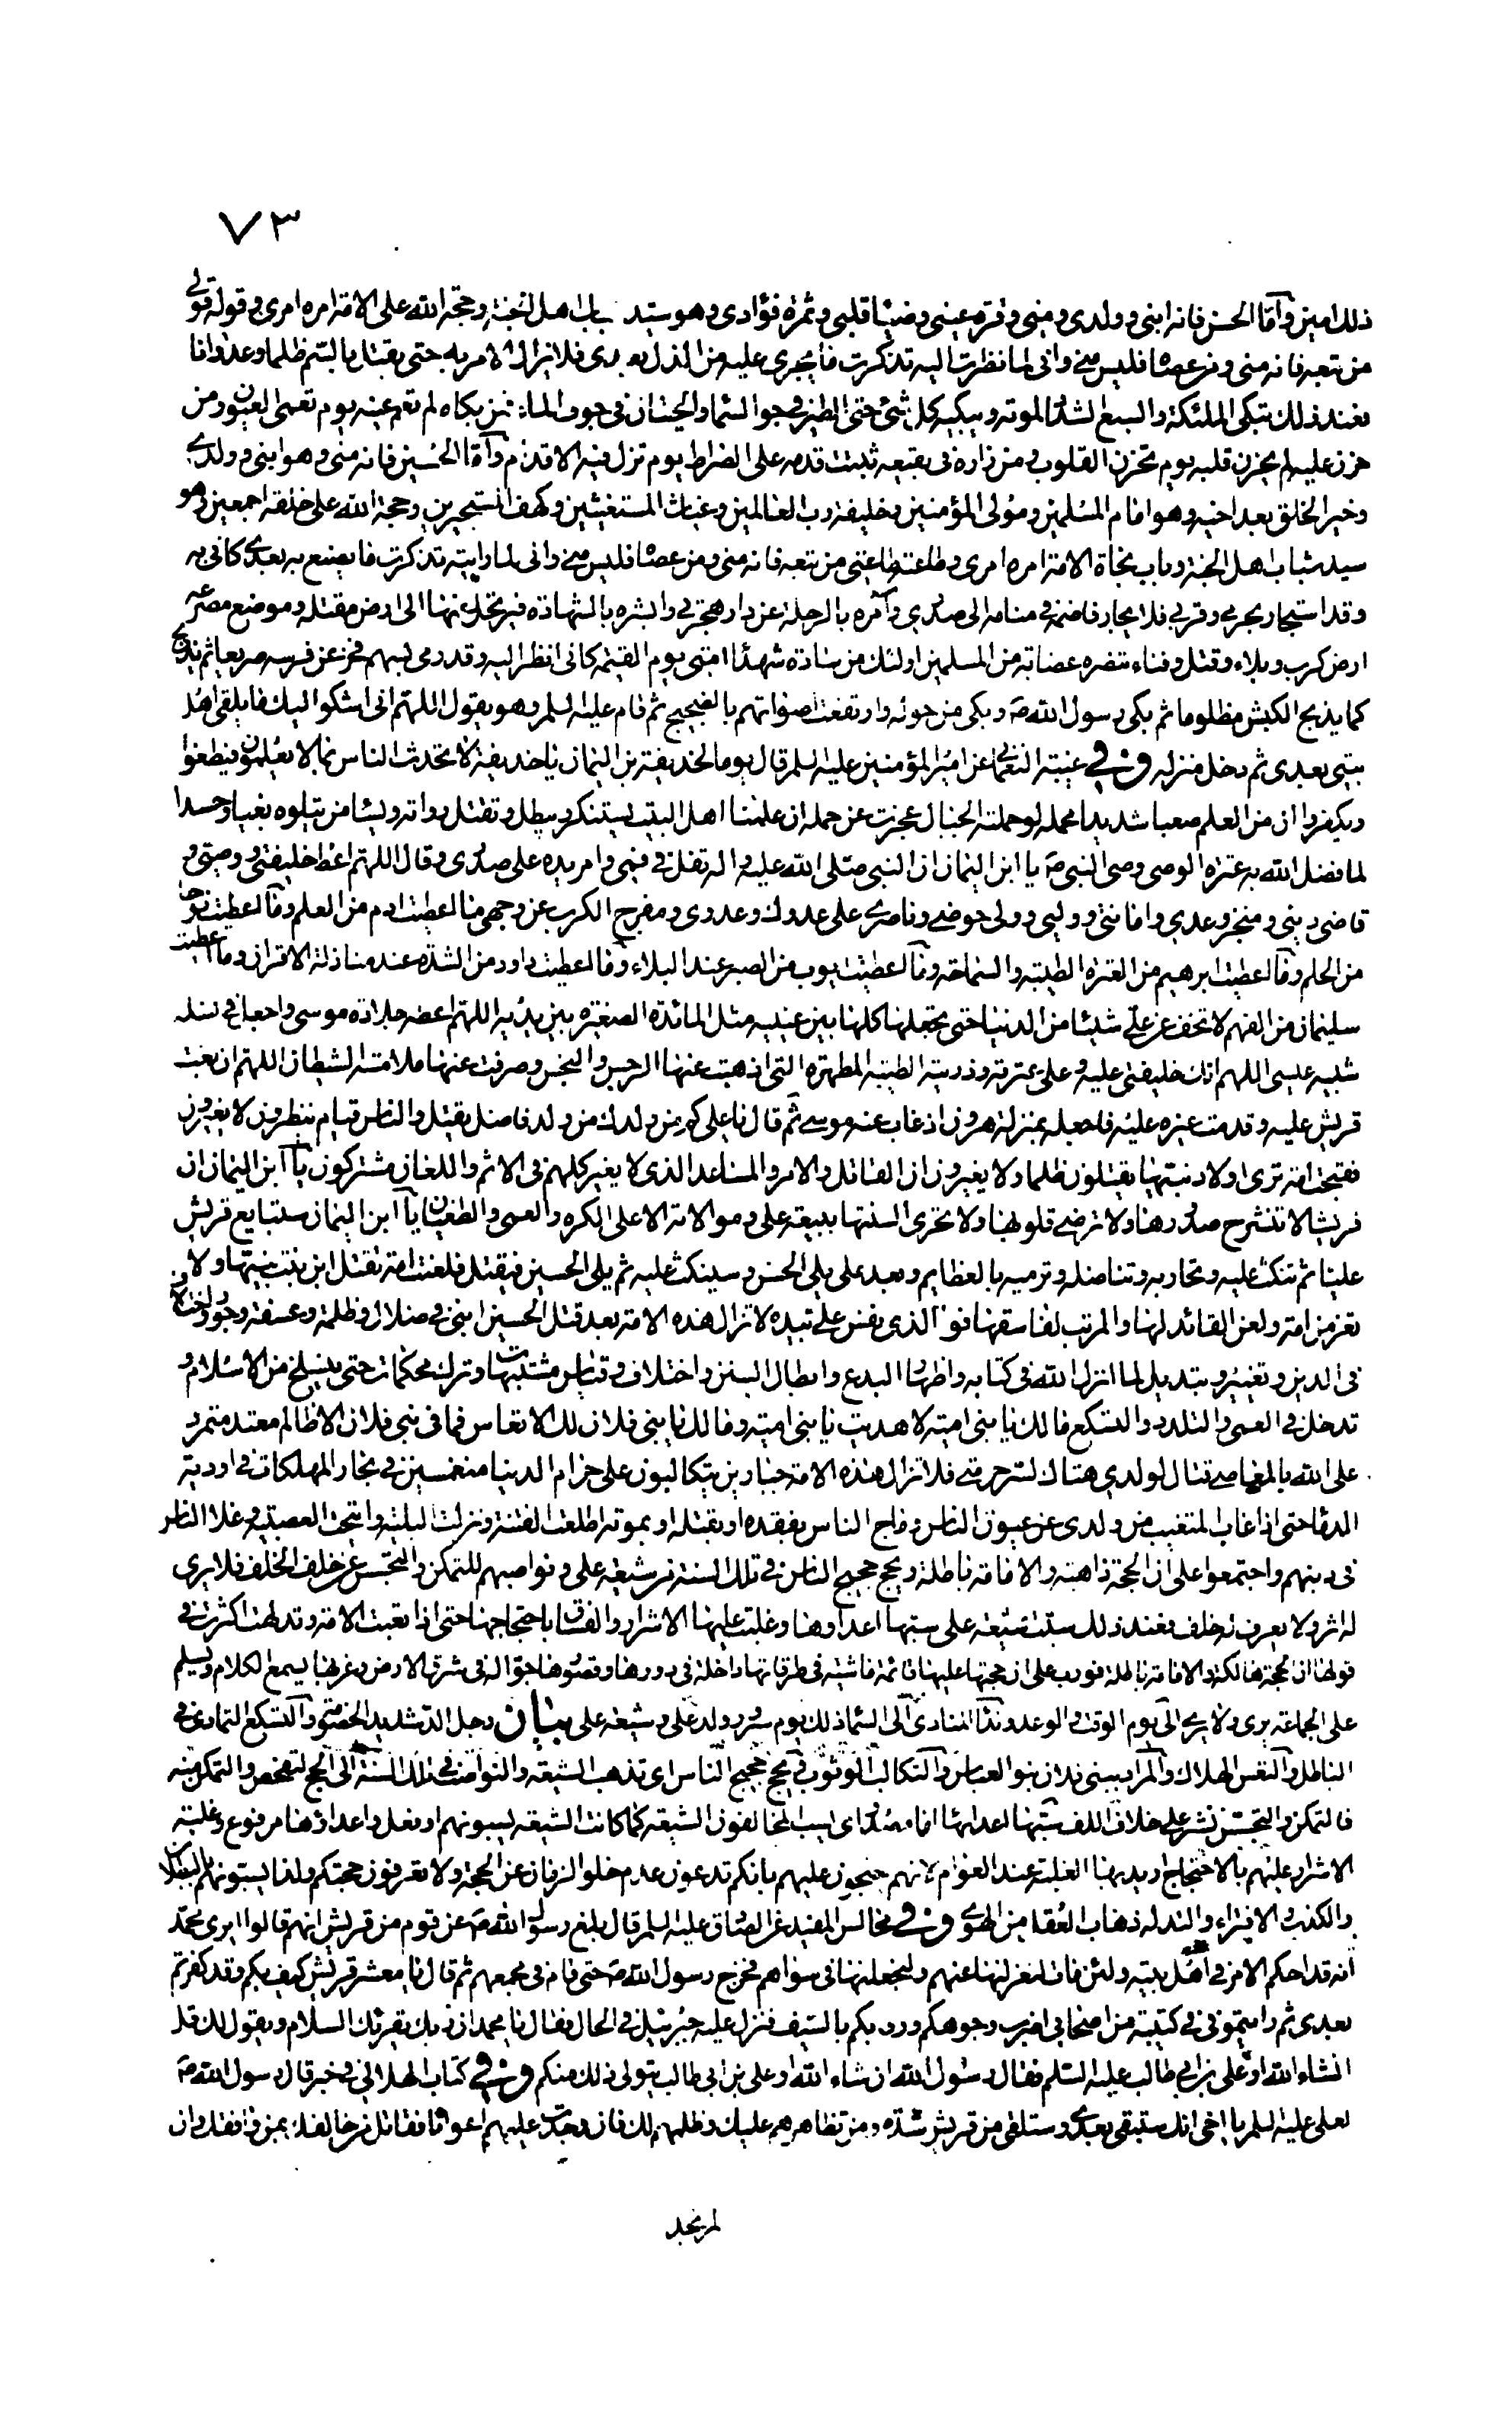 ٧٣
ذلك امين وأمّا الحسن فانه ابنى وولدى ومنى وقرة عينى وضيا قلبى وثمرة فؤادى وهو سيد شباب اهل الجنة وحجة الله على الامة امره امرى وقوله قولى
من تبعه فانه منى ومن عصاه فليس منى وانى لما نظرت اليه تذكرت ما يجرى عليه من الذل بعدى فلا يزال الامر به حتى يقتل بالسم ظلما وعدوانا
فعند ذلك تبكى الملئكة والسبع الشداد لموته ويبكيه كل شئ حتى الطير فى جو السماء والحيتان فى جوف الماء فمن بكاه لم تعم عينه يوم تعمى العيون ومن
حزن عليه لم يحزن قلبه يوم تحزن القلوب ومن زاره فى بقيعه ثبتت قدمه على الصراط يوم تزل فيه الاقدام وأمّا الحسين فانه منى وهو ابنى وولدى
وخير الخلق بعد اخيه وهو امام المسلمين ومولى المؤمنين وخليفة رب العالمين وغياث المستغيثين وكهف المستجيرين وحجة الله على خلقه اجمعين وهو
سيد شباب اهل الجنة وباب نجاة الامة امره امرى وطاعته طاعتى من تبعه فانه منى ومن عصاه فليس منى وانى لما رايته تذكرت ما يصنع به بعدى كانى به
وقد استجار بحرمى وقربى فلا يجار فاضمه فى منامه الى صدرى وآمره بالرحلة عن دار هجرتى وابشره بالشهادة فيرتحل عنها الى ارض مقتله وموضع مصرعه
ارض كرب وبلاء وقتل وفناء تنصره عصابة من المسلمين اولئك من سادة شهداء امتى يوم القيمة كانى انظر اليه وقد رمى بسهم فخر عن فرسه صريعا ثم يذبح
كما يذبح الكبش مظلوما ثم بكى رسول الله ص وبكى من حوله وارتفعت اصواتهم بالضجيج ثم قام عليه السلم وهو يقول اللهم انى اشكو اليك ما يلقى اهل
بيتى بعدى ثم دخل منزله وفى غيبة النعمانى عن امير المؤمنين عليه السلم قال يوما لحذيفة بن اليمان يا حذيفة لا تحدث الناس بما لا يعلمون فيطغوا
ويكفروا ان من العلم صعبا شديدا محمله لو حملته الجبال عجزت عن حمله ان علمنا اهل البيت يستنكر ويبطل وتقتل رواته ويساء من يتلوه بغيا وحسدا
لما فضل الله به عترة الوصى وصى النبى ص يا ابن اليمان ان النبى صلى الله عليه واله تفل فى فمى وامر يده على صدرى وقال اللهم اعط خليفتى ووصيى و
قاضى دينى ومنجز وعدى وامانتى ووليى وولى حوضى وناصرى على عدوك وعدوى ومفرج الكرب عن وجهى ما اعطيت ادم من العلم وما اعطيت نوحا
من الحلم وما اعطيت ابرهيم من العترة الطيبة والسماحة وما اعطيت ايوب من الصبر عند البلاء وما اعطيت داود من الشدة عند منازلة الاقران وما اعطيت
سليمان من الفهم لا تخف عن على شيئا من الدنيا حتى تجعلها كلها بين عينيه مثل المائدة الصغيرة بين يديه اللهم اعطه جلادة موسى واجعل فى نسله
شبيه عيسى اللهم انك خليفتى عليه وعلى عترته وذريته الطيبة المطهرة التى اذهبت عنها الرجس والنجس وصرفت عنها ملامسة الشيطان اللهم ان بغت
قريش عليه وقدمت غيره عليه فاجعله بمنزلة هرون اذ غاب عنه موسى ثم قال يا على كم من ولدك من ولد فاضل يقتل والناس قيام ينظرون لا يغيرون
فقبحت امة ترى اولاد نبيها يقتلون ظلما ولا يغيرون ان القاتل والامر والمساعد الذى لا يغير كلهم فى الاثم واللعان مشتركون يا ابن اليمان ان
قريشا لا تنشرح صدورها ولا ترضى قلوبها ولا تجرى السنتها ببيعة على وموالاته الا على الكره والعمى والطغيان يا ابن اليمان ستبايع قريش
عليا ثم تنكث عليه وتحاربه وتناضله وترميه بالعظايم وبعد على يلى الحسن وسينكث عليه ثم يلى الحسين فيقتل فلعنت امة تقتل ابن بنت نبيها ولا
تعز من امة ولعن القائد لها والمرتب لفاسقها فو الذى نفس على بيده لا تزال هذه الامة بعد قتل الحسين ابنى فى ضلال وظلمة وعسفة وجور واختلاف
فى الدين وتغيير وتبديل لما انزل الله فى كتابه واظهار البدع وابطال السنن واختلاف وقياس مشتبهات وترك محكمات حتى ينسلخ من الاسلام و
تدخل فى العمى والتلدد والتسكع مالك يا بنى امية لا هديت يا بنى امية ومالك يا بنى فلان لك الاتعاس فما فى بنى فلان الا ظالم معتد متمرد
على الله بالمعاصى قتال لولدى هتاك لستر حرمتى فلا تزال هذه الامة جبارين يتكالبون على حرام الدنيا منغمسين فى بحار المهلكات فى اودية
الدماء حتى اذا غاب المتغيب من ولدى عن عيون الناس وماج الناس بفقده او بقتله او بموته اطلعت الفتنة ونزلت البلية واتيحت العصبية وغلا الناس
فى دينهم واجتمعوا على ان الحجة ذاهبة والامامة باطلة ويحج حجيج الناس فى تلك السنة من شيعة على ونواصبهم للتمكن والتجسس عن خلف الخلف فلا يرى
له اثر ولا يعرف له خلف فعند ذلك سبت شيعة على سبها اعداؤها وغلبت عليها الاشرار والفساق باحتجاجها حتى اذا تعبت الامة وتدلهت اكثرت فى
قولها ان الحجة هالكة والامامة باطلة فورب على ان حجتها عليها قائمة ماشية فى طرقاتها داخلة فى دورها وقصورها جوالة فى شرق الارض وغربها يسمع الكلام ويسلم
على الجماعة يرى ولا يرى الى يوم الوقت والوعد ونداء المنادى الى السماء ذلك يوم سرور ولد على وشيعة على بيان رجل الد شديد الخصومة والتسكع التمادى فى
الباطل والتعس الهلاك والمراد ببنى فلان بنو العباس والتكالب التواثب وفى يحج حجيج الناس اى تذهب الشيعة والنواصب فى تلك السنة الى الحج لتفحص والتمكن منه
فالتمكن والتجسس نشر على خلاف اللف سبتها اعدائها اما مصدر اى سب المخالفون الشيعة كما كانت الشيعة يسبونهم او فعل واعداؤها مرفوع وغلبة
الاشرار عليهم بالاحتجاج اريد بها الغلبة عند العوام لانهم يحتجون عليهم بانكم تدعون عدم خلو الزمان عن الحجة ولا تعرفون حجتكم ولذا يسبونهم بالبطلان
والكذب والافتراء والتدله ذهاب العقل من الهوى وفى مجالس المفيد عن الصادق عليه السلم قال بلغ رسول الله ص عن قوم من قريش انهم قالوا ايرى محمد
انه قد احكم الامر فى اهل بيته ولئن مات لنعزلنها عنهم ولنجعلنها فى سواهم فخرج رسول الله ص حتى قام فى مجمعهم ثم قال يا معشر قريش كيف بكم وقد كفرتم
بعدى ثم رايتمونى فى كتيبة من اصحابى اضرب وجوهكم ورقابكم بالسيف فنزل عليه جبرئيل فى الحال فقال يا محمد ان ربك يقرئك السلام ويقول لك قل
انشاء الله او على بن ابى طالب عليه السلم فقال رسول الله ان شاء الله او على بن ابى طالب يتولى ذلك منكم وفى كتاب الهلالى فى خبر قال رسول الله ص
لعلى عليه السلم يا اخى انك ستبقى بعدى وستلقى من قريش شدة ومن تظاهرهم عليك وظلمهم لك فان وجدت عليهم اعوانا فقاتل من خالفك بمن وافقك وان
لم تجد